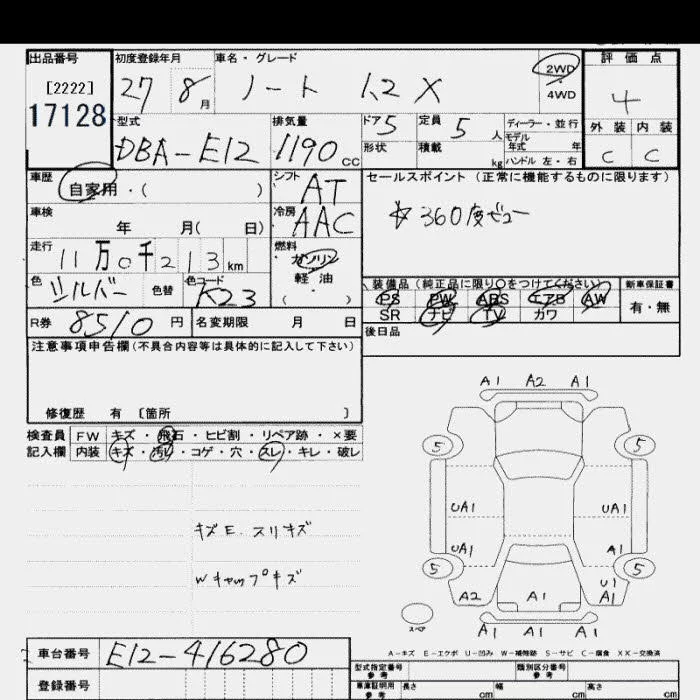 出品番号 初度登録年月 車名・グレード 評価点
[2222] 27 8月 ノート 1.2 X 2WD 4
17128 4WD
型式 排気量 ドア 5 定員 5人 ディーラー・並行 外装 内装
モデル
DBA-E12 1190cc 形状 積載 kg 年式 年 C C
ハンドル 左・右
車歴 自家用・( ) シフト AT セールスポイント (正常に機能するものに限ります)
車検 年 月( 日) 冷房 AAC ☆360度ビュー
走行 11万0千213km 燃料 ガソリン
軽油
( ・ )
色 シルバー 色替 色コード K23 装備品 (純正品に限り〇をつけてください) 新車保証書
PS PW ABS エアB AW 有・無
SR ナビ TV カワ
R券 8510円 名変期限 月 日 後日品
注意事項申告欄 (不具合内容等は具体的に記入して下さい)
修復歴 有 〔箇所 〕
検査員 FW キズ・飛石・ヒビ割・リペア跡・×要
記入欄 内装 キズ・汚レ・コゲ・穴・スレ・キレ・破レ
キズE. スリキズ
Wキャップキズ
A1 A2 A1
5 5
UA1 UA1
UA1 A1
5 5
U1
A2 A1 A1
A1 A1 A1
スペア
A-キズ E-エクボ U-凹み W-補修跡 S-サビ C-腐食 XX-交換済
車台番号 E12-416280
登録番号
型式指定番号 参考 類別区分番号 参考
車庫証明用 参考 長さ cm 幅 cm 高さ cm